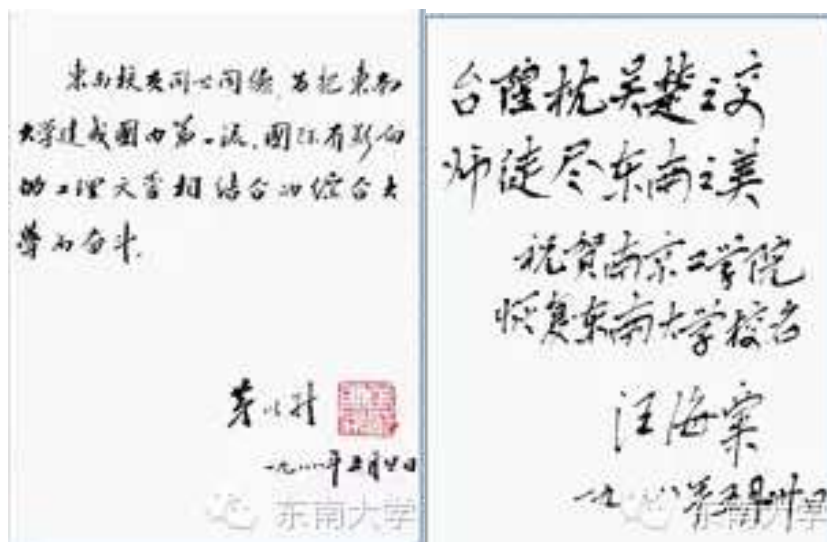 东南校友同心同德,为把东南
大学建成國内第一流,國际有影响
的工理文管相结合的综合大
學而奋斗.
茅以升
一九八八年五月廿日
东南大学
台隍枕吴楚之交
师徒尽东南之美
祝贺南京工学院
恢复东南大学校名
汪海粟
一九八八年五月卅日
东南大学